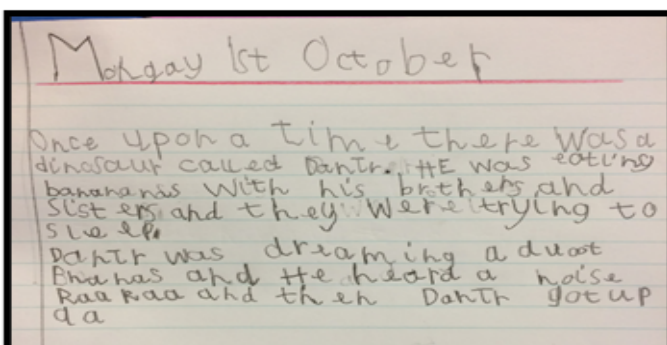 Monday 1st October
Once upon a time there was a
dinosaur called DanTr. HE was eating
banananas with his brothers and
sisters and they were trying to
sleep.
DanTr was dreaming a duoot
Bnanas and He heard a noise
Raa Raa and then DanTr got up
da